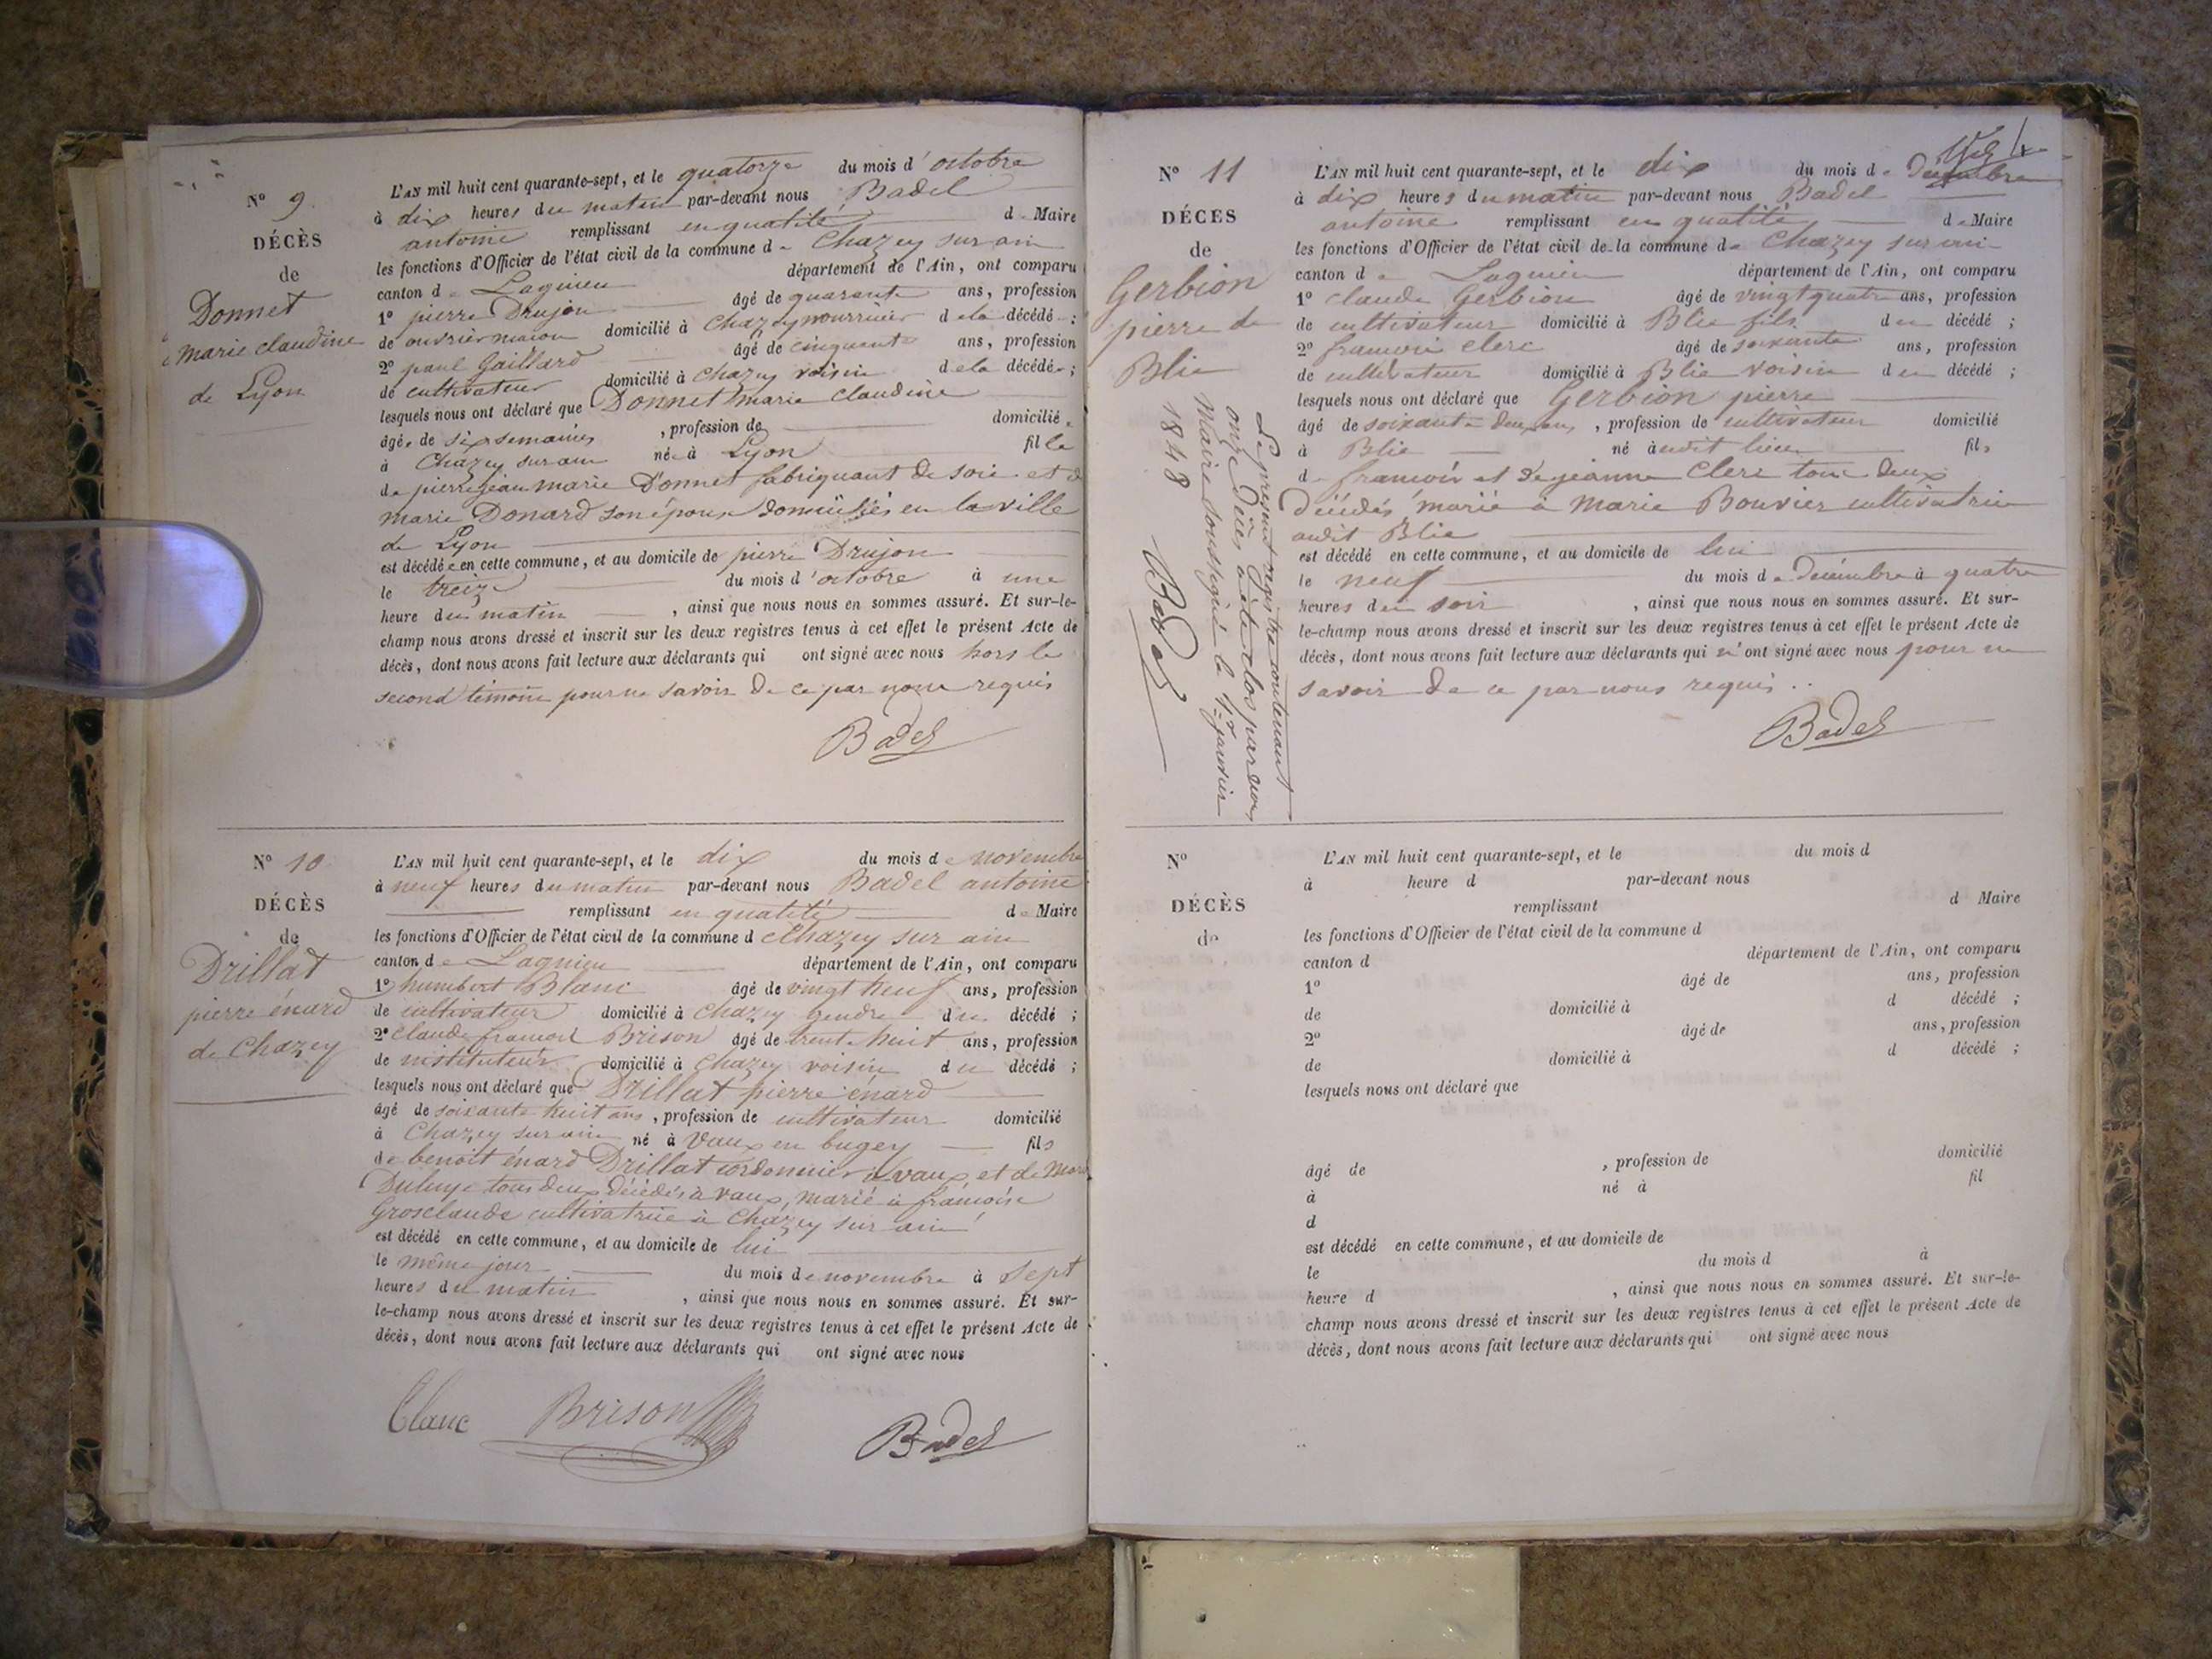 N° 9.
DÉCÈS
de
Donnet
marie claudine
de Lyon
L'AN mil huit cent quarante-sept, et le quatorze du mois d'octobre
à dix heures du matin par-devant nous Badel
antoine remplissant en qualité de Maire
les fonctions d'Officier de l'état civil de la commune de Chazey sur ain
canton de Lagnieu département de l'Ain, ont comparu
1° pierre Drujon âgé de quarante ans, profession
de ouvrier maçon domicilié à Chazey nourricier de la décédée ;
2° paul Gaillard âgé de cinquante ans, profession
de cultivateur domicilié à Chazey voisin de la décédée ;
lesquels nous ont déclaré que Donnet marie claudine
âgée de six semaines , profession de domiciliée
à Chazey sur ain née à Lyon fille
de pierre jean marie Donnet fabriquant de soie et de
marie Donard son épouse domiciliés en la ville
de Lyon
est décédée en cette commune, et au domicile de pierre Drujon
le treize du mois d'octobre à une
heure du matin , ainsi que nous nous en sommes assuré. Et sur-le-
champ nous avons dressé et inscrit sur les deux registres tenus à cet effet le présent Acte de
décès, dont nous avons fait lecture aux déclarants qui ont signé avec nous hors le
second témoin pour ne savoir de ce par nous requis
Badel
N° 10
DÉCÈS
de
Drillat
pierre énard
de Chazey
L'AN mil huit cent quarante-sept, et le dix du mois de novembre
à neuf heures du matin par-devant nous Badel antoine
remplissant en qualité de Maire
les fonctions d'Officier de l'état civil de la commune d Chazey sur ain
canton de Lagnieu département de l'Ain, ont comparu
1° humbert Blanc âgé de vingt neuf ans, profession
de cultivateur domicilié à Chazey gendre du décédé ;
2° Claude françois Brison âgé de trente huit ans, profession
de instituteur domicilié à Chazey voisin du décédé ;
lesquels nous ont déclaré que Drillat pierre énard
âgé de soixante huit ans , profession de cultivateur domicilié
à Chazey sur ain né à Vaux en bugey fils
de benoit énard Drillat cordonnier à vaux et de
tous deux décédés à vaux, marié à françoise
Grosclaude cultivatrice à Chazey sur ain
est décédé en cette commune, et au domicile de lui
le même jour du mois de novembre à Sept
heures du matin , ainsi que nous nous en sommes assuré. Et sur-
le-champ nous avons dressé et inscrit sur les deux registres tenus à cet effet le présent Acte de
décès, dont nous avons fait lecture aux déclarants qui ont signé avec nous
Blanc Brison Badel
N° 11
DÉCÈS
de
Gerbion
pierre de
Blie
L'AN mil huit cent quarante-sept, et le dix du mois de Décembre
à dix heures du matin par-devant nous Badel
antoine remplissant en qualité de Maire
les fonctions d'Officier de l'état civil de la commune de Chazey sur ain
canton de Lagnieu département de l'Ain, ont comparu
1° claude Gerbion âgé de vingt quatre ans, profession
de cultivateur domicilié à Blie fils du décédé ;
2° françois clerc âgé de soixante ans, profession
de cultivateur domicilié à Blie voisin du décédé ;
lesquels nous ont déclaré que Gerbion pierre
âgé de soixante deux ans , profession de cultivateur domicilié
à Blie né audit lieu fils
de françois et de jeanne Clerc tous deux
Décédés marié à Marie Bouvier cultivatrice
audit Blie
est décédé en cette commune, et au domicile de lui
le neuf du mois de Décembre à quatre
heures du soir , ainsi que nous nous en sommes assuré. Et sur-
le-champ nous avons dressé et inscrit sur les deux registres tenus à cet effet le présent Acte de
décès, dont nous avons fait lecture aux déclarants qui n'ont signé avec nous pour ne
savoir de ce par nous requis..
Badel
Le présent registre contenant
onze Décès a été clos par nous
Maire soussigné le 1er janvier
1848 Badel
N°
DÉCÈS
de
L'AN mil huit cent quarante-sept, et le du mois d
à heure d par-devant nous
remplissant d Maire
les fonctions d'Officier de l'état civil de la commune d
canton d département de l'Ain, ont comparu
1° âgé de ans, profession
de domicilié à d décédé ;
2° âgé de ans, profession
de domicilié à d décédé ;
lesquels nous ont déclaré que
âgé de , profession de domicilié
à né à fil
d
est décédé en cette commune, et au domicile de
le du mois d à
heure d , ainsi que nous nous en sommes assuré. Et sur-le-
champ nous avons dressé et inscrit sur les deux registres tenus à cet effet le présent Acte de
décès, dont nous avons fait lecture aux déclarants qui ont signé avec nous